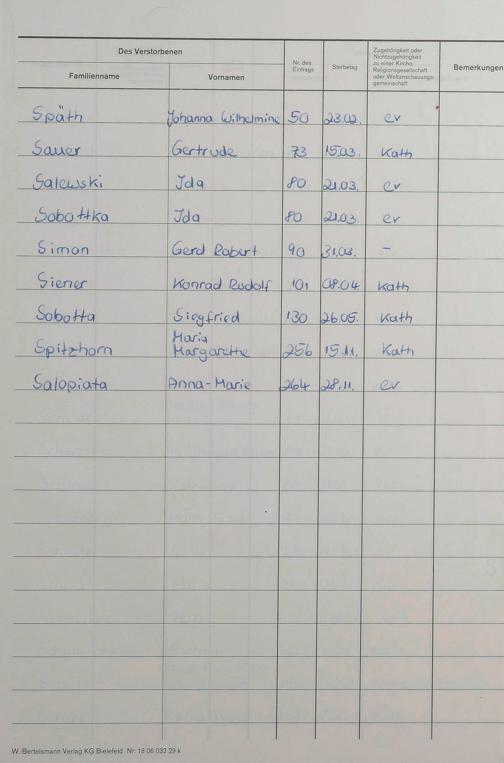 Des Verstorbenen
Familienname Vornamen Nr. des Eintrags Sterbetag Zugehörigkeit oder Nichtzugehörigkeit zu einer Kirche, Religionsgesellschaft oder Weltanschauungsgemeinschaft Bemerkungen
Späth Johanna Wilhelmine 50 23.02. ev
Sauer Gertrude 73 15.03. Kath
Salewski Ida 80 21.03. ev
Sobottka Ida 80 21.03. ev
Simon Gerd Robert 90 31.03. -
Siener Konrad Rudolf 101 08.04 Kath
Sobotta Siegfried 130 26.05. Kath
Spitzhorn Maria Margarethe 256 15.11. Kath
Salopiata Anna-Marie 264 28.11. ev
W. Bertelsmann Verlag KG Bielefeld Nr. 18 06 032 29 k